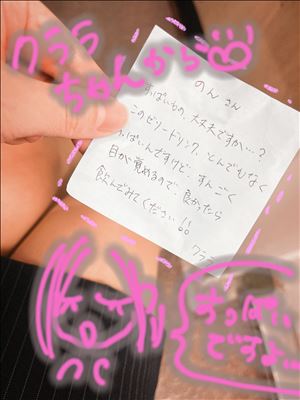 クララ
ちゃんから
のん さん
すっぱいもの、大丈夫ですか…?
このゼリードリンク、とんでもなく
すっぱいんですけど、すんごく
目が覚めるので、良かったら
飲んでみてください!!
クララ
すっぱい
ですよ…